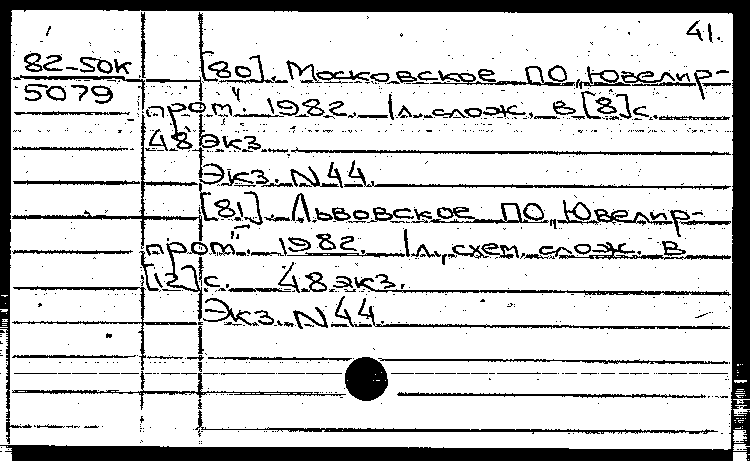 41.
82-50к [80]. Московское ПО „Ювелир-
5079 пром". 1982. 1л. слож. в [8] с.
48 экз.
Экз. N 44.
[81]. Львовское ПО „Ювелир-
пром". 1982. 1л., схем, слож. в
[12] с. 48 экз.
Экз. N 44.